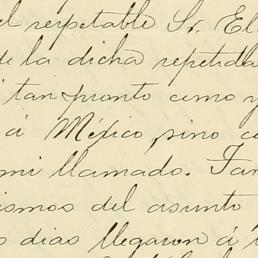 el respetable Sr. El
de la dicha repetida
i tan pronto como y
á México, sino c
mi llamado. Tan
ismos del asunto
s dias llegaron á